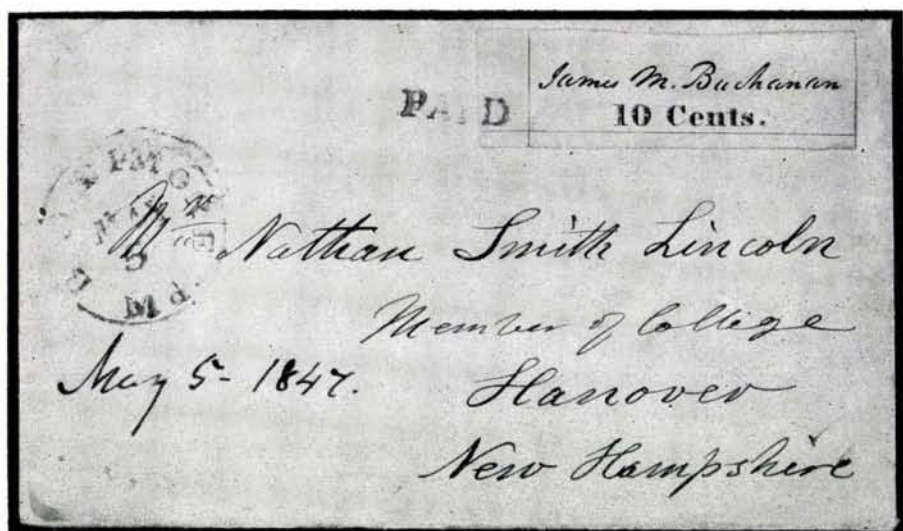 James M. Buchanan
10 Cents.
PAID
Mr Nathan Smith Lincoln
Member of College
Hanover
New Hampshire
May 5- 1847.